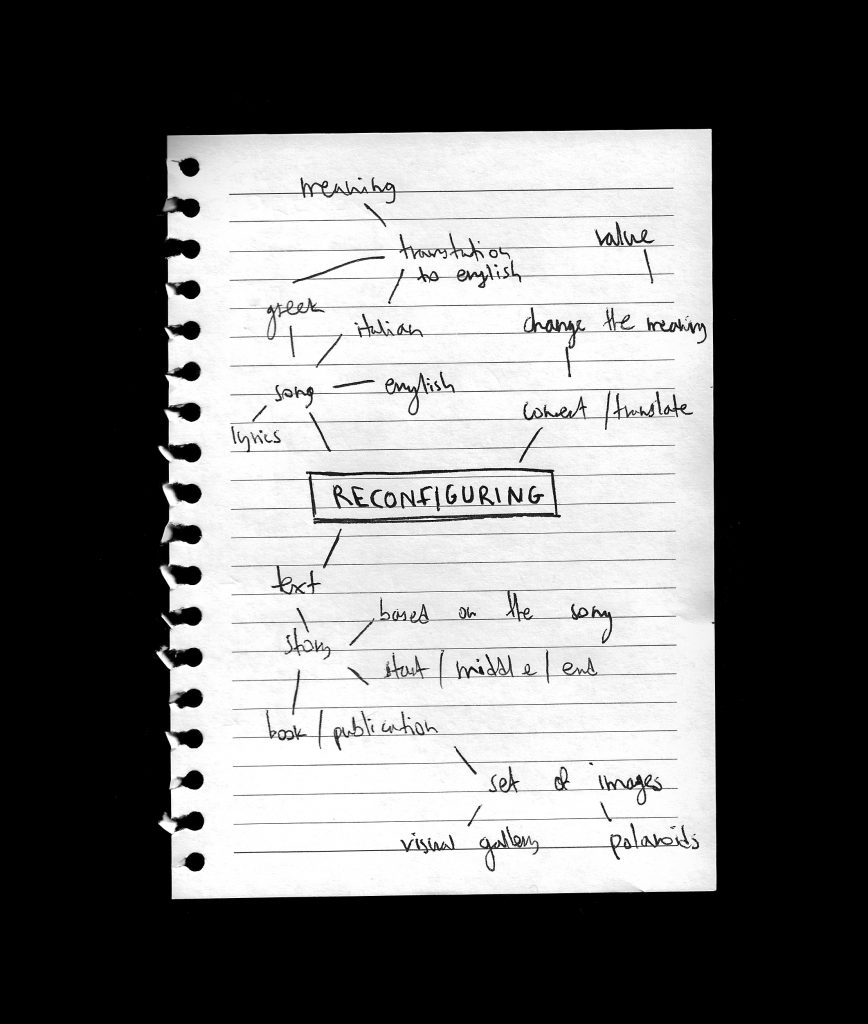 meaning
translation
to english
value
greek
italian
change the meaning
song
english
convert / translate
lyrics
RECONFIGURING
text
based on the song
story
start / middle / end
book / publication
set of images
visual gallery
polaroids